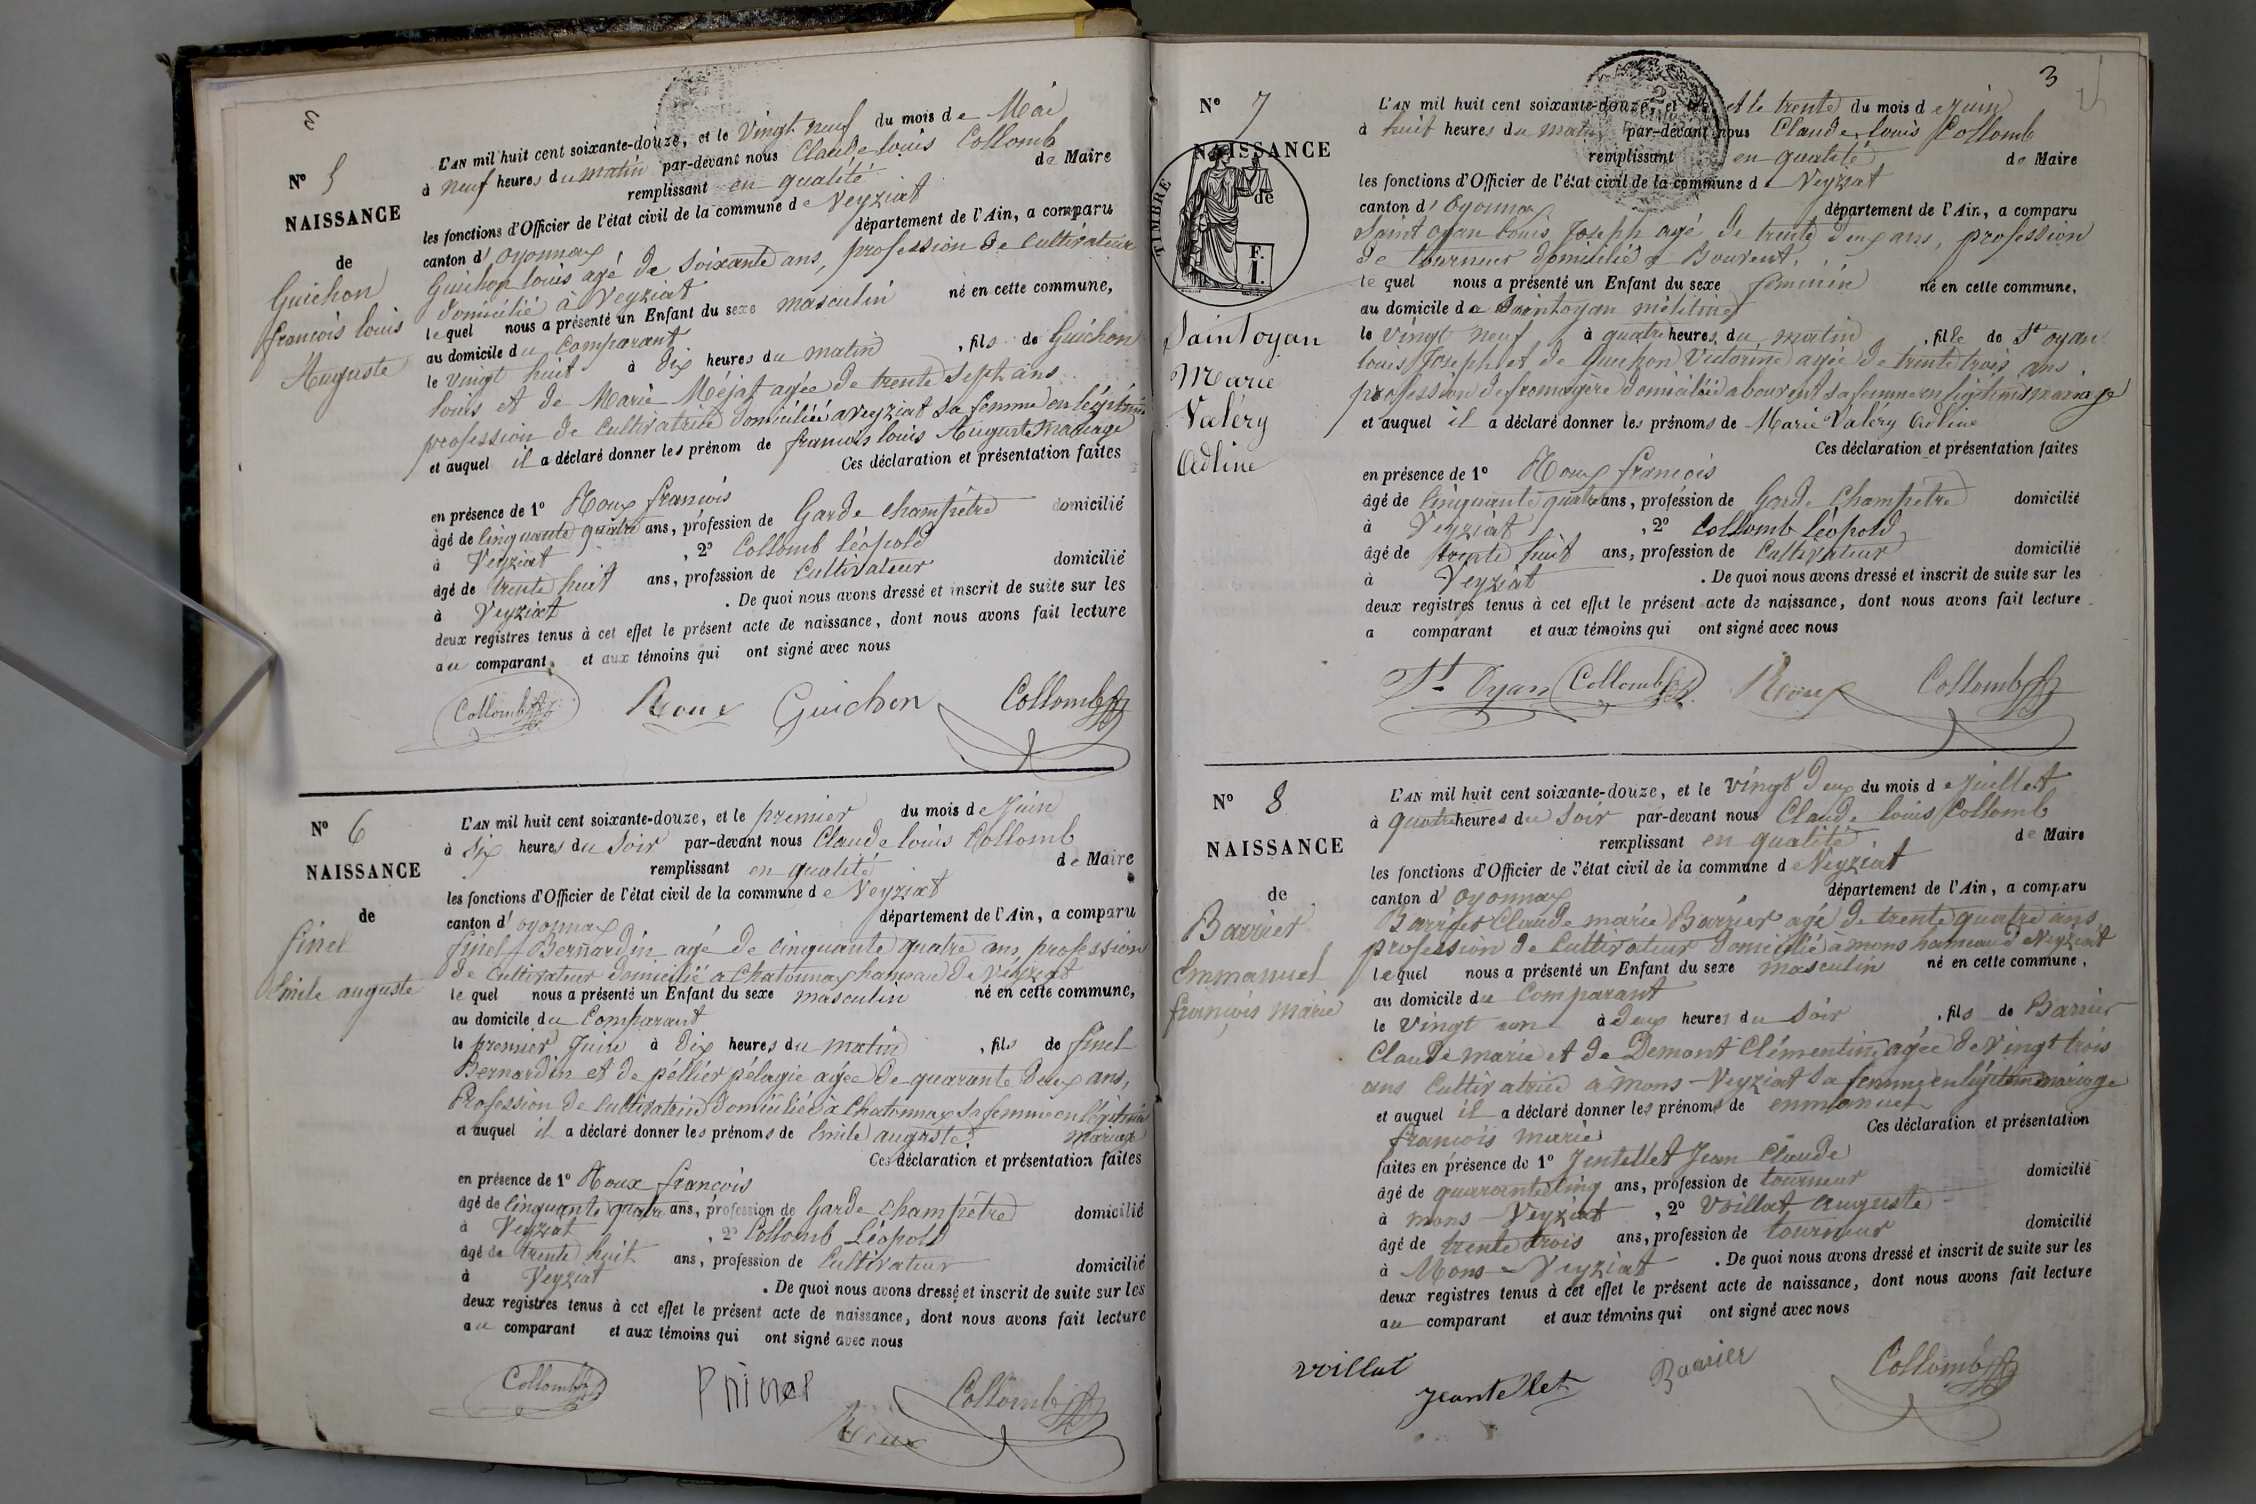 3
N° 5
NAISSANCE
de
Guichon
françois louis
Auguste
L'AN mil huit cent soixante-douze, et le Vingt neuf du mois de Mai
à neuf heures du matin par-devant nous Claude louis Collomb
remplissant en qualité de Maire
les fonctions d'Officier de l'état civil de la commune de Veyziat
canton d'oyonnax département de l'Ain, a comparu
Guichon louis agé de Soixante ans, profession de Cultivateur
domicilié à Veyziat
lequel nous a présenté un Enfant du sexe masculin né en cette commune,
au domicile du Comparant
le Vingt huit à dix heures du matin, fils de Guichon
louis et de Marie Méjat agée de trente Sept ans
profession de Cultivatrice domiciliée a veyziat sa femme en légitime
et auquel il a déclaré donner les prénom de francois louis Auguste mariage
Ces déclaration et présentation faites
en présence de 1° Roux francois
âgé de Cinquante quatre ans, profession de Garde Champêtre domicilié
à Veyziat, 2° Collomb léopold
âgé de trente huit ans, profession de Cultivateur domicilié
à Veyziat. De quoi nous avons dressé et inscrit de suite sur les
deux registres tenus à cet effet le présent acte de naissance, dont nous avons fait lecture
au comparant et aux témoins qui ont signé avec nous
Collomb Roux Guichon Collomb
N° 6
NAISSANCE
de
finel
Emile auguste
L'AN mil huit cent soixante-douze, et le premier du mois de Juin
à Six heures du Soir par-devant nous Claude louis Collomb
remplissant en qualité de Maire
les fonctions d'Officier de l'état civil de la commune de Veyziat
canton d'oyonnax département de l'Ain, a comparu
finel Bernardin agé de Cinquante quatre ans, profession
de Cultivateur domicilié a Chatonnax hameau de Veyziat
le quel nous a présenté un Enfant du sexe masculin né en cette commune,
au domicile du Comparant
le premier Juin à Dix heures du matin, fils de finel
Bernardin et de péllier pélagie agée de quarante deux ans,
Profession de Cultivatrice domiciliée à Chatonnax sa femme en légitime
et auquel il a déclaré donner les prénoms de Emile auguste. mariage
Ces déclaration et présentation faites
en présence de 1° Roux francois
âgé de Cinquante quatre ans, profession de Garde Champêtre domicilié
à Veyziat, 2° Collomb Léopold
âgé de trente huit ans, profession de Cultivateur domicilié
à Veyziat. De quoi nous avons dressé et inscrit de suite sur les
deux registres tenus à cet effet le présent acte de naissance, dont nous avons fait lecture
au comparant et aux témoins qui ont signé avec nous
Collomb Collomb
Roux
3
N° 7
NAISSANCE
TIMBRE
de
F.
1.
Saintoyan
Marie
Valéry
Adline
L'AN mil huit cent soixante-douze, et le trente du mois de Juin
à huit heures du matin par-devant nous Claude louis Collomb
remplissant en qualité de Maire
les fonctions d'Officier de l'état civil de la commune de Veyziat
canton d'Oyonnax département de l'Ain, a comparu
Saint oyan louis Joseph agé de trente deux ans, profession
de tourneur domicilié a Bouvent,
le quel nous a présenté un Enfant du sexe féminin né en cette commune,
au domicile de Saintoyan
le vingt neuf à quatre heures du matin, fille de St oyan
louis Joseph et de Guichon Victorine agée de trente trois ans
profession de fromagere domiciliée a bouvent sa femme en légitime mariage
et auquel il a déclaré donner les prénoms de Marie Valéry Adline
Ces déclaration et présentation faites
en présence de 1° Roux francois
âgé de Cinquante quatre ans, profession de Garde Champêtre domicilié
à Veyziat, 2° Collomb léopold
âgé de trente huit ans, profession de Cultivateur domicilié
à Veyziat. De quoi nous avons dressé et inscrit de suite sur les
deux registres tenus à cet effet le présent acte de naissance, dont nous avons fait lecture
a comparant et aux témoins qui ont signé avec nous
St Oyan Collomb Roux Collomb
N° 8
NAISSANCE
de
Barrier
Emmanuel
françois marie
L'AN mil huit cent soixante-douze, et le vingt deux du mois de Juillet
à quatre heures du Soir par-devant nous Claude louis Collomb
remplissant en qualité de Maire
les fonctions d'Officier de l'état civil de la commune de Veyziat
canton d'oyonnax département de l'Ain, a comparu
Barrier Claude marie Barrier agé de trente quatre ans
profession de Cultivateur domicilié a mons hameau de Veyziat
lequel nous a présenté un Enfant du sexe masculin né en cette commune,
au domicile du Comparant
le Vingt un à deux heures du Soir, fils de Barrier
Claude marie et de Demont Clémentine agée de Vingt trois
ans Cultivatrice à mons Veyziat sa femme en légitime mariage
et auquel il a déclaré donner les prénoms de emmanuel
francois marie Ces déclaration et présentation
faites en présence de 1° Jentellet Jean Claude
âgé de quarante cinq ans, profession de tourneur domicilié
à mons Veyziat, 2° Voillat auguste
âgé de trente trois ans, profession de tourneur domicilié
à Mons Veyziat. De quoi nous avons dressé et inscrit de suite sur les
deux registres tenus à cet effet le présent acte de naissance, dont nous avons fait lecture
au comparant et aux témoins qui ont signé avec nous
Voillat Jeantellet Barrier Collomb